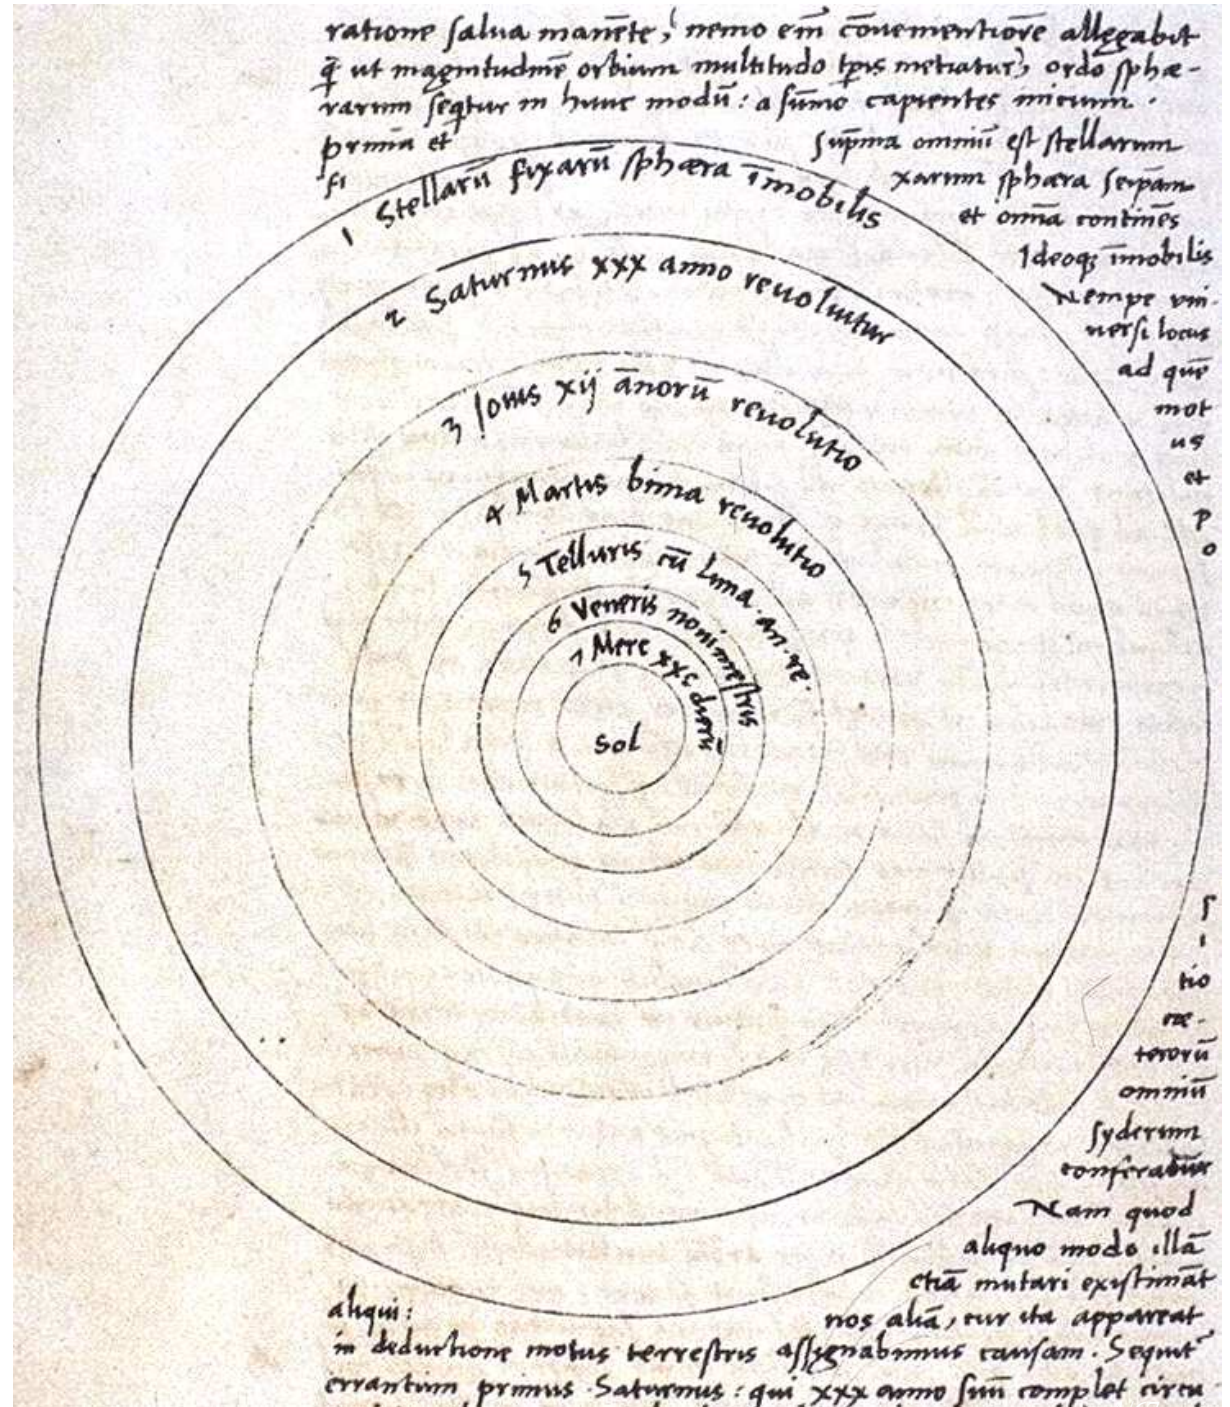 ratione salua manēte, nemo em̄ cōuenientiorē allegabit
q̄ ut magnitudinē orbium multitudo tp̄is metiatur, ordo sphæ-
rarum seq̄tur in hunc modū: a sūmo capientes initium.
prima et
sup̄ma omniū est stellarum
fi
xarum sphæra seip̄am
et om̄ia continēs
Ideoq; īmobilis
Nempe vni-
uersi locus
ad quē
mot
us
et
p
o
1 Stellarū fixarū sphæra īmobilis
2 Saturnus xxx anno reuoluitur
3 Jouis xij ānorū reuolutio
4 Martis bima reuolutio
5 Telluris cū Luna. an. re.
6 Veneris nonimestris
7 Merc xxc dierū
Sol
s
i
tio
cæ-
terorū
omniū
syderum
conferatur
Nam quod
aliquo modo illā
etiā mutari existimāt
aliqui:
nos aliā, cur ita appareat
in deductione motus terrestris assignabimus causam. Sequit᷑
errantium primus Saturnus: qui xxx anno suū complet circu-